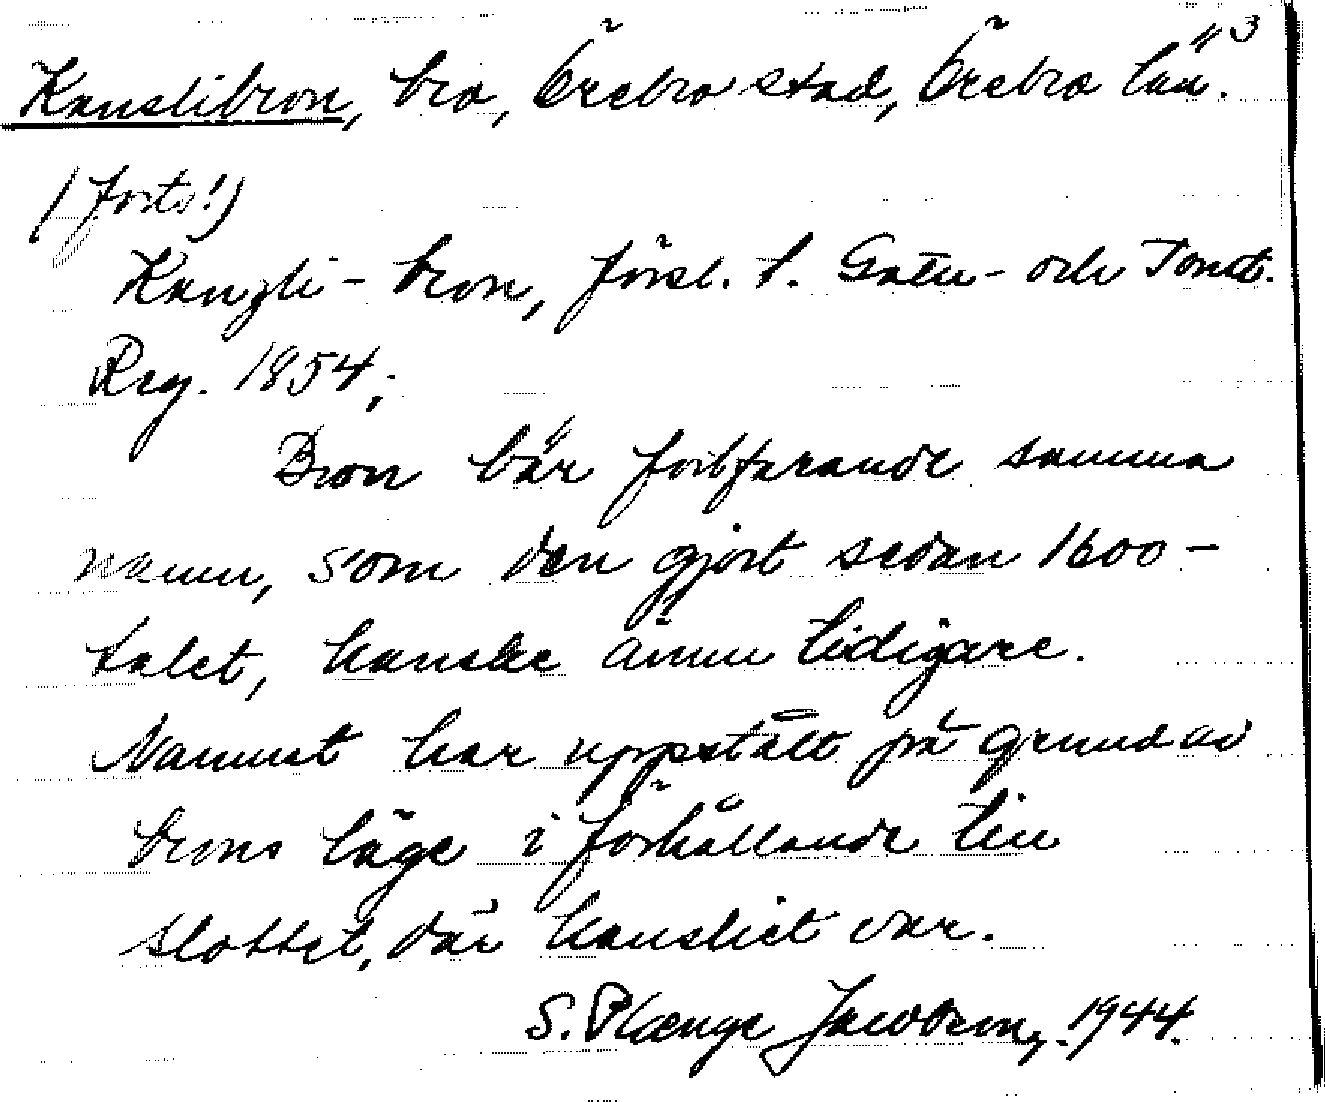 3
Kanslibron, bro, Örebro stad, Örebro län.
(forts!)
Kanzli-bron, försl. t. Gatu- och Tomt.
Reg. 1854;
Bron bär fortfarande samma
namn, som den gjort sedan 1600-
talet, kanske ännu tidigare.
Namnet har uppstått på grund av
brons läge i förhållande till
slottet, där kansliet var.
S. Plænge Jacobson, 1944.